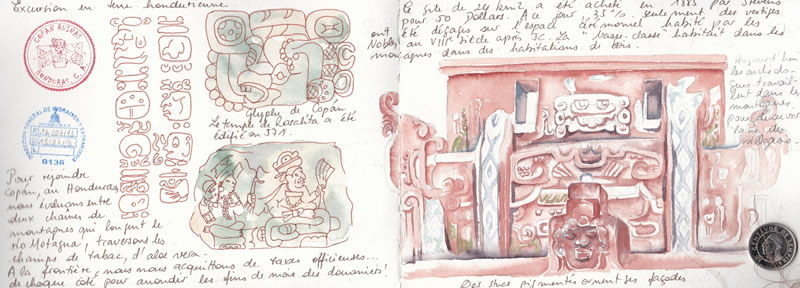 Excursion en terre hondurienne
COPAN RUINAS
HONDURAS, C.A.
8136
Glyphe de Copán
Le temple de Rosalila a été
édifié en 571.
Pour rejoindre
Copán, au Honduras
nous évoluons entre
deux chaînes de
montagnes qui longent le
rio Motagua, traversons les
champs de tabac, d'aloe vera.
A la frontière, nous nous acquittons de taxes officieuses...
de chaque côté pour arrondir les fins de mois des douaniers!
Le site de 24 km2 a été acheté en 1885 par Stevens
pour 50 Dollars. A ce jour 3,5% seulement des vestiges
ont été dégagés sur l'espace cérémoniel habité par les
Nobles au VIIIe siècle après JC. La "basse-classe" habitait dans les
montagnes dans des habitations de bois.
Aujourd'hui
les archéolo-
gues travail-
lent dans les
montagnes
pour découvrir
la vie des
Des stucs pigmentés ornent ses façades